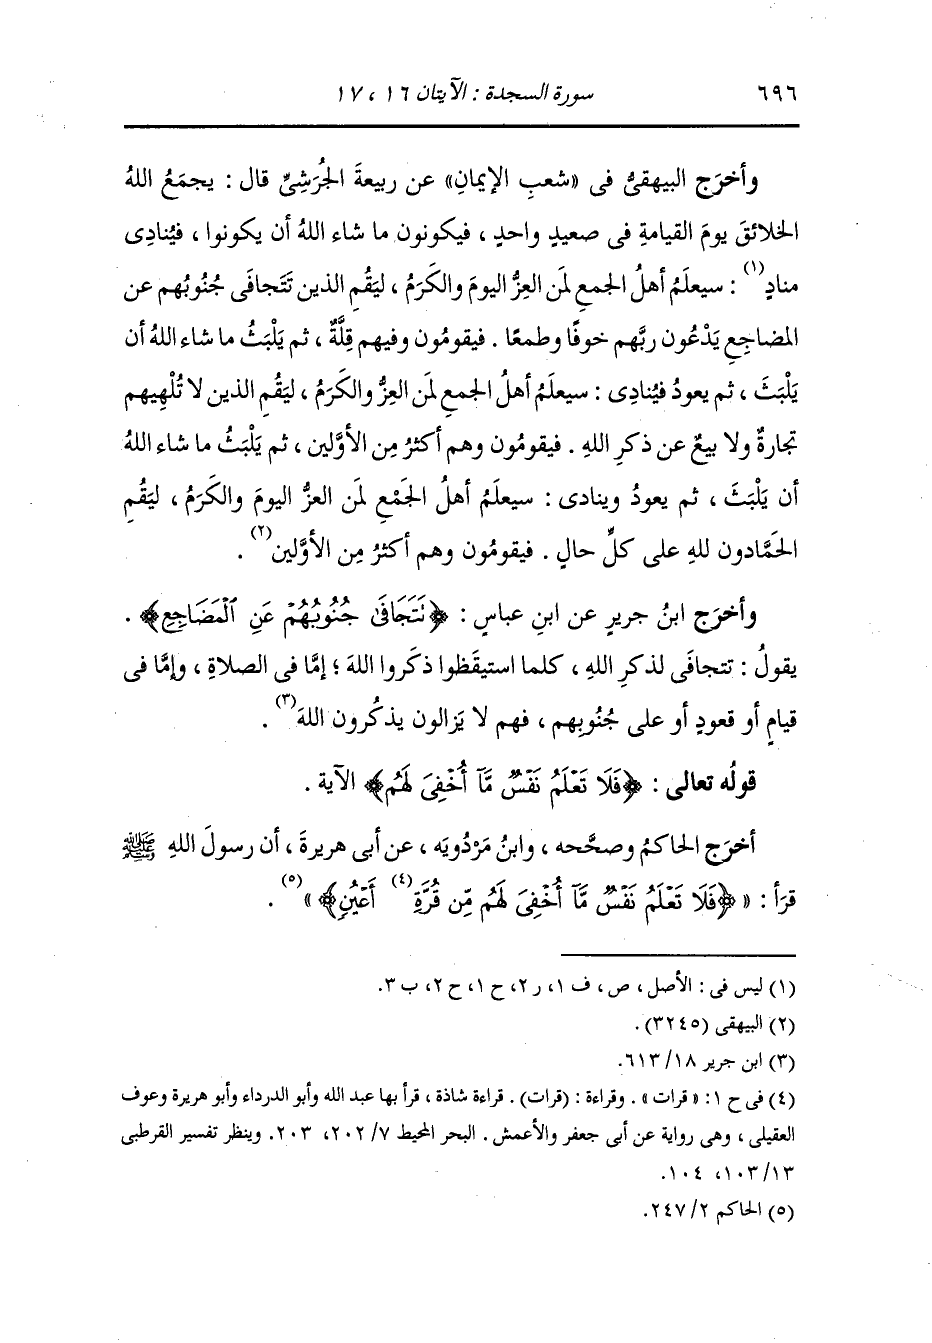 ٦٩٦ سورة السجدة : الآيتان ١٦ ، ١٧
وأخرَج البيهقىُّ فى «شعبِ الإيمانِ» عن ربيعةَ الجُرَشِىِّ قال : يجمَعُ اللهُ
الخلائقَ يومَ القيامةِ فى صعيدٍ واحدٍ ، فيكونون ما شاء اللهُ أن يكونوا ، فيُنادِى
منادٍ(١) : سيعلَمُ أهلُ الجمعِ لمَن العِزُّ اليومَ والكَرَمُ ، ليَقُمِ الذين تَتَجافَى جُنُوبُهم عن
المضاجعِ يَدْعُون ربَّهم خوفًا وطمعًا . فيقومُون وفيهم قِلَّةٌ ، ثم يَلْبَثُ ما شاء اللهُ أن
يَلْبَثَ ، ثم يعودُ فيُنادِى : سيعلَمُ أهلُ الجمعِ لمَن العِزُّ والكَرَمُ ، ليَقُمِ الذين لا تُلْهِيهم
تجارةٌ ولا بيعٌ عن ذكرِ اللهِ . فيقومُون وهم أكثرُ مِن الأوَّلين ، ثم يَلْبَثُ ما شاء اللهُ
أن يَلْبَثَ ، ثم يعودُ وينادى : سيعلَمُ أهلُ الجَمْعِ لمَن العزُّ اليومَ والكَرَمُ ، ليَقُمِ
الحَمَّادون للهِ على كلِّ حالٍ . فيقومُون وهم أكثرُ مِن الأوَّلين(٢) .
وأخرَج ابنُ جريرٍ عن ابنِ عباسٍ : ﴿نَتَجَافَىٰ جُنُوبُهُمْ عَنِ ٱلْمَضَاجِعِ﴾ .
يقولُ : تتجافَى لذكرِ اللهِ ، كلما استيقَظوا ذكَروا اللهَ ؛ إمَّا فى الصلاةِ ، وإمَّا فى
قيامٍ أو قعودٍ أو على جُنُوبِهم ، فهم لا يَزالون يذكُرون اللهَ(٣) .
قولُه تعالى : ﴿فَلَا تَعْلَمُ نَفْسٌ مَّآ أُخْفِىَ لَهُم﴾ الآية .
أخرَج الحاكمُ وصحَّحه ، وابنُ مَرْدُويَه ، عن أبى هريرةَ ، أن رسولَ اللهِ ﷺ
قرَأ : « ﴿فَلَا تَعْلَمُ نَفْسٌ مَّآ أُخْفِىَ لَهُم مِّن قُرَّةِ(٤) أَعْيُنٍ﴾ »(٥) .
(١) ليس فى : الأصل ، ص ، ف ١، ر ٢، ح ١، ح ٢، ب ٣.
(٢) البيهقى (٣٢٤٥) .
(٣) ابن جرير ١٨/ ٦١٣.
(٤) فى ح ١: « قرات » . وقراءة : (قرات) . قراءة شاذة ، قرأ بها عبد الله وأبو الدرداء وأبو هريرة وعوف
العقيلى ، وهى رواية عن أبى جعفر والأعمش . البحر المحيط ٧/ ٢٠٢، ٢٠٣. وينظر تفسير القرطبى
١٣/ ١٠٣، ١٠٤.
(٥) الحاكم ٢/ ٢٤٧.